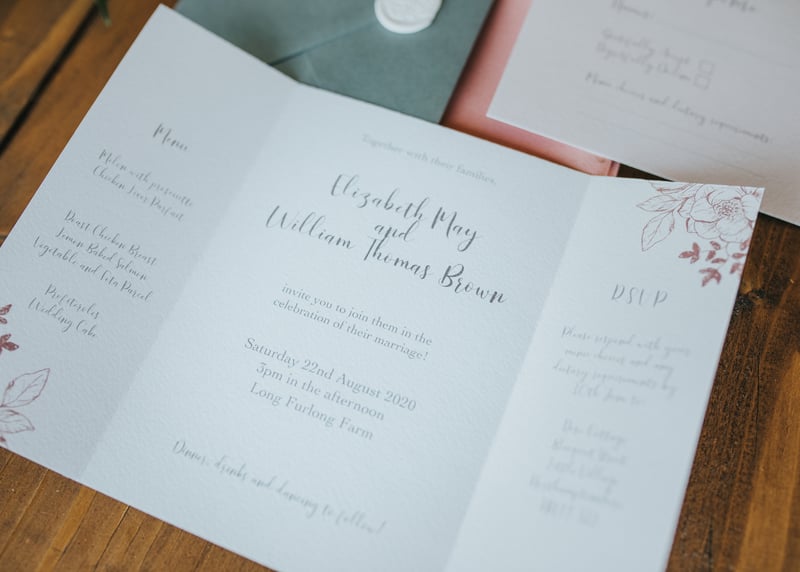 Menu
Melon with prosciutto
Chicken Liver Parfait
Roast Chicken Breast
Lemon Baked Salmon
Vegetable and Feta Parcel
Profiteroles
Wedding Cake
Together with their families,
Elizabeth May
and
William Thomas Brown
invite you to join them in the
celebration of their marriage!
Saturday 22nd August 2020
3pm in the afternoon
Long Furlong Farm
Dinner, drinks and dancing to follow!
RSVP
Please respond with your
menu choices and any
dietary requirements by
to:
Cottage
Menu choices and dietary requirements: